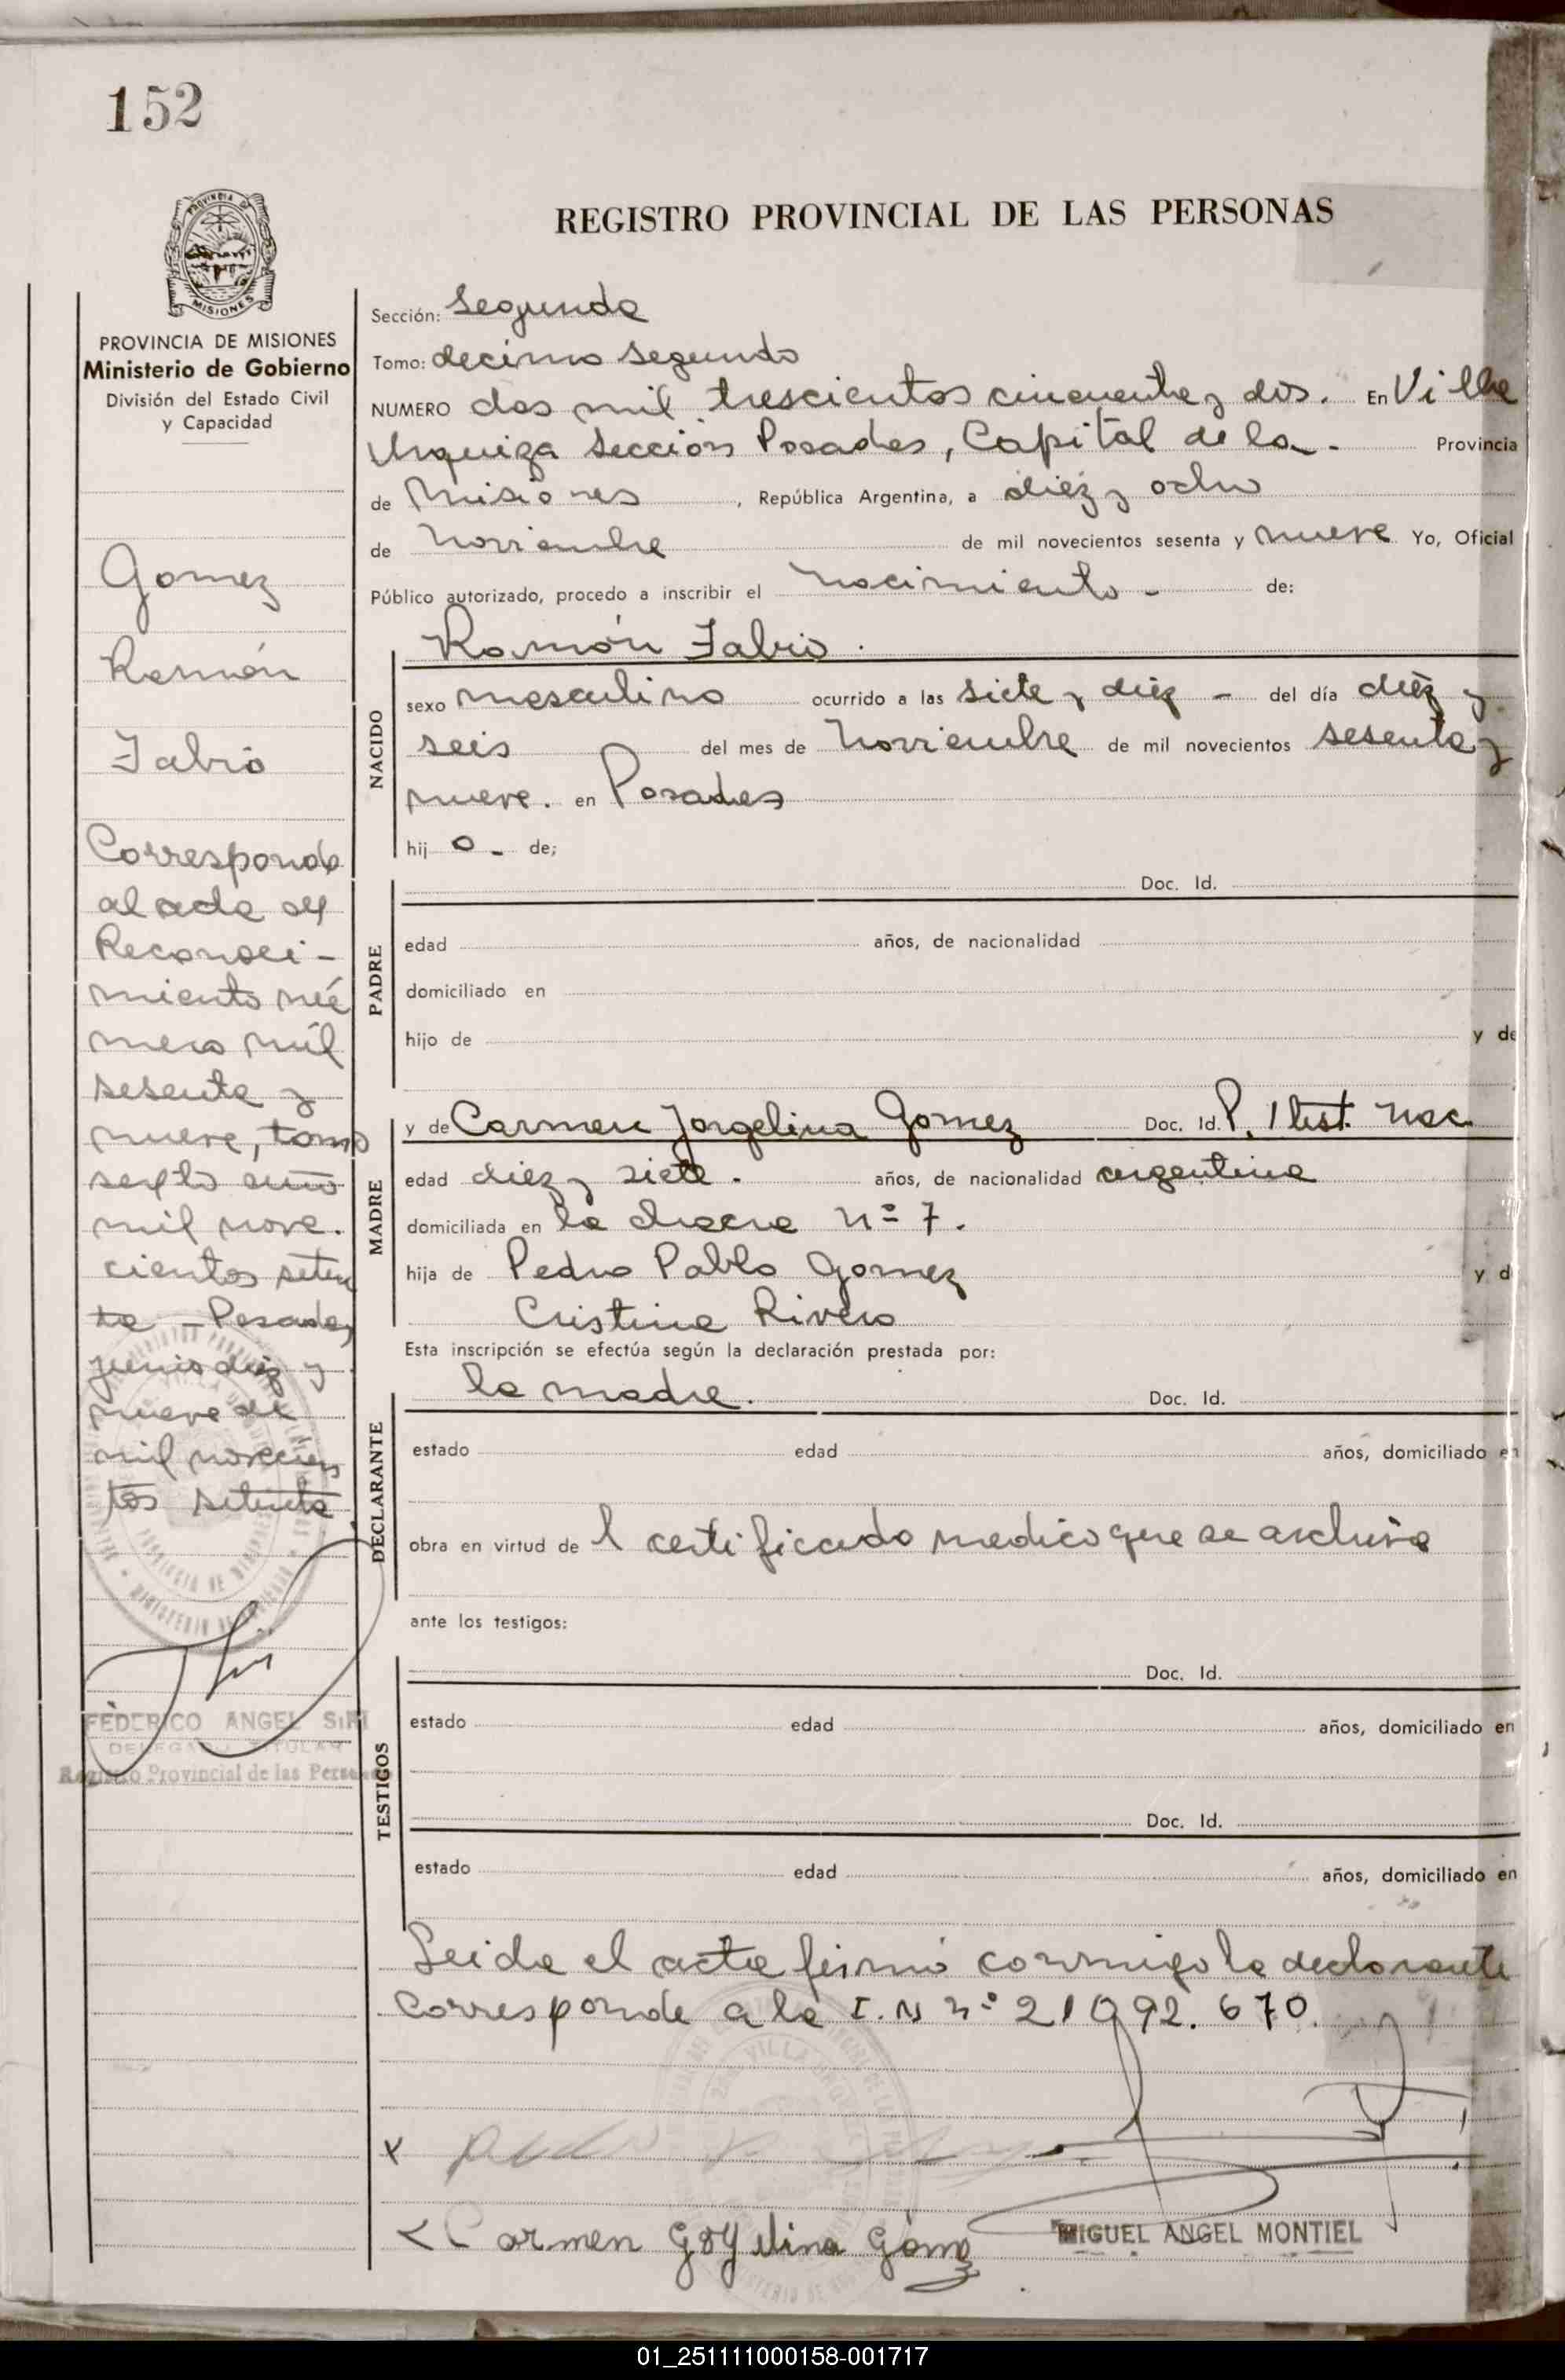 152
PROVINCIA DE
MISIONES
PROVINCIA DE MISIONES
Ministerio de Gobierno
División del Estado Civil
y Capacidad
Gomez
Ramón
Fabio
Corresponde
al acta de
Reconoci-
miento nú
mero mil
sesenta y
nueve, tomo
sexto año
mil nove.
cientos seten
ta - Posadas,
junio diez y
nueve de
mil novecien
tos setenta
FEDERICO ANGEL SIRI
DELEGADO TITULAR
Registro Provincial de las Personas
REGISTRO PROVINCIAL DE LAS PERSONAS
Sección: segunda
Tomo: decimo segundo
NUMERO dos mil trescientos cincuenta y dos. En Villa
Urquiza Sección Posadas, Capital de la - Provincia
de Misiones, República Argentina, a diez y ocho
de Noviembre de mil novecientos sesenta y nueve Yo, Oficial
Público autorizado, procedo a inscribir el nacimiento - de:
Ramón Fabio.
NACIDO
sexo masculino ocurrido a las siete y diez - del día diez y
seis del mes de Noviembre de mil novecientos sesenta y
nueve. en Posadas
hij o - de;
PADRE
Doc. Id.
edad años, de nacionalidad
domiciliado en
hijo de y de
MADRE
y de Carmen Jorgelina Gomez Doc. Id. P. 1 test. Nac.
edad diez y siete. años, de nacionalidad argentina
domiciliada en la chacra nº 7.
hija de Pedro Pablo Gomez y d
Cristina Rivero
Esta inscripción se efectúa según la declaración prestada por:
DECLARANTE
la madre. Doc. Id.
estado edad años, domiciliado en
obra en virtud de l certificado medico que se archiva
ante los testigos:
TESTIGOS
Doc. Id.
estado edad años, domiciliado en
Doc. Id.
estado edad años, domiciliado en
Leida el acta firmó conmigo la declarante
corresponde a la I. N nº 21092.670.
x
Carmen Goygelina Gómez
MIGUEL ANGEL MONTIEL
01_251111000158-001717